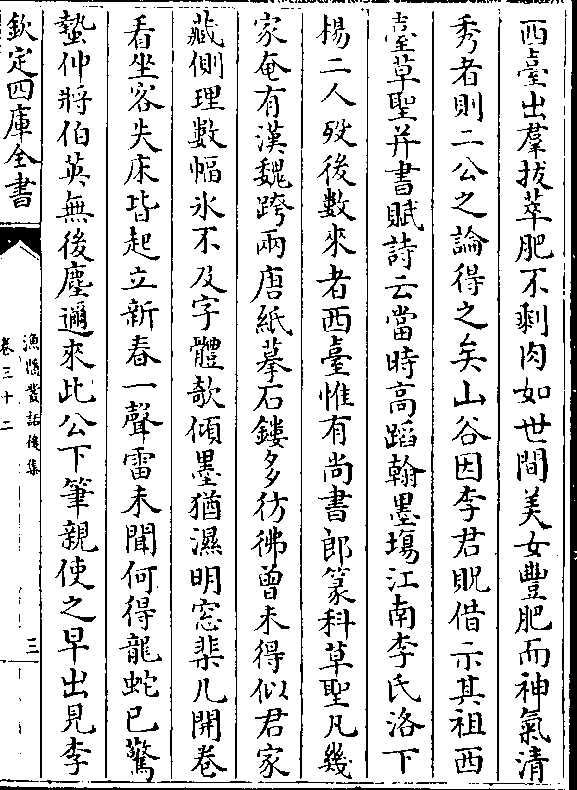 西臺出羣拔萃肥不剩肉如世間美女豐肥而神氣清
秀者則二公之論得之矣山谷因李君貺借示其祖西
臺草聖并書賦詩云當時高蹈翰墨場江南李氏洛下
楊二人歿後數來者西臺惟有尚書郎篆科草聖凡幾
家奄有漢魏跨兩唐紙摹石鏤多彷彿曾未得似君家
藏側理數幅冰不及字體欹傾墨猶濕明窓棐几開卷
看坐客失床皆起立新春一聲雷未聞何得龍蛇已驚
蟄仲將伯英無後塵邇來此公下筆親使之早出見李
欽定四庫全書
漁隱叢話後集
卷三十二
三